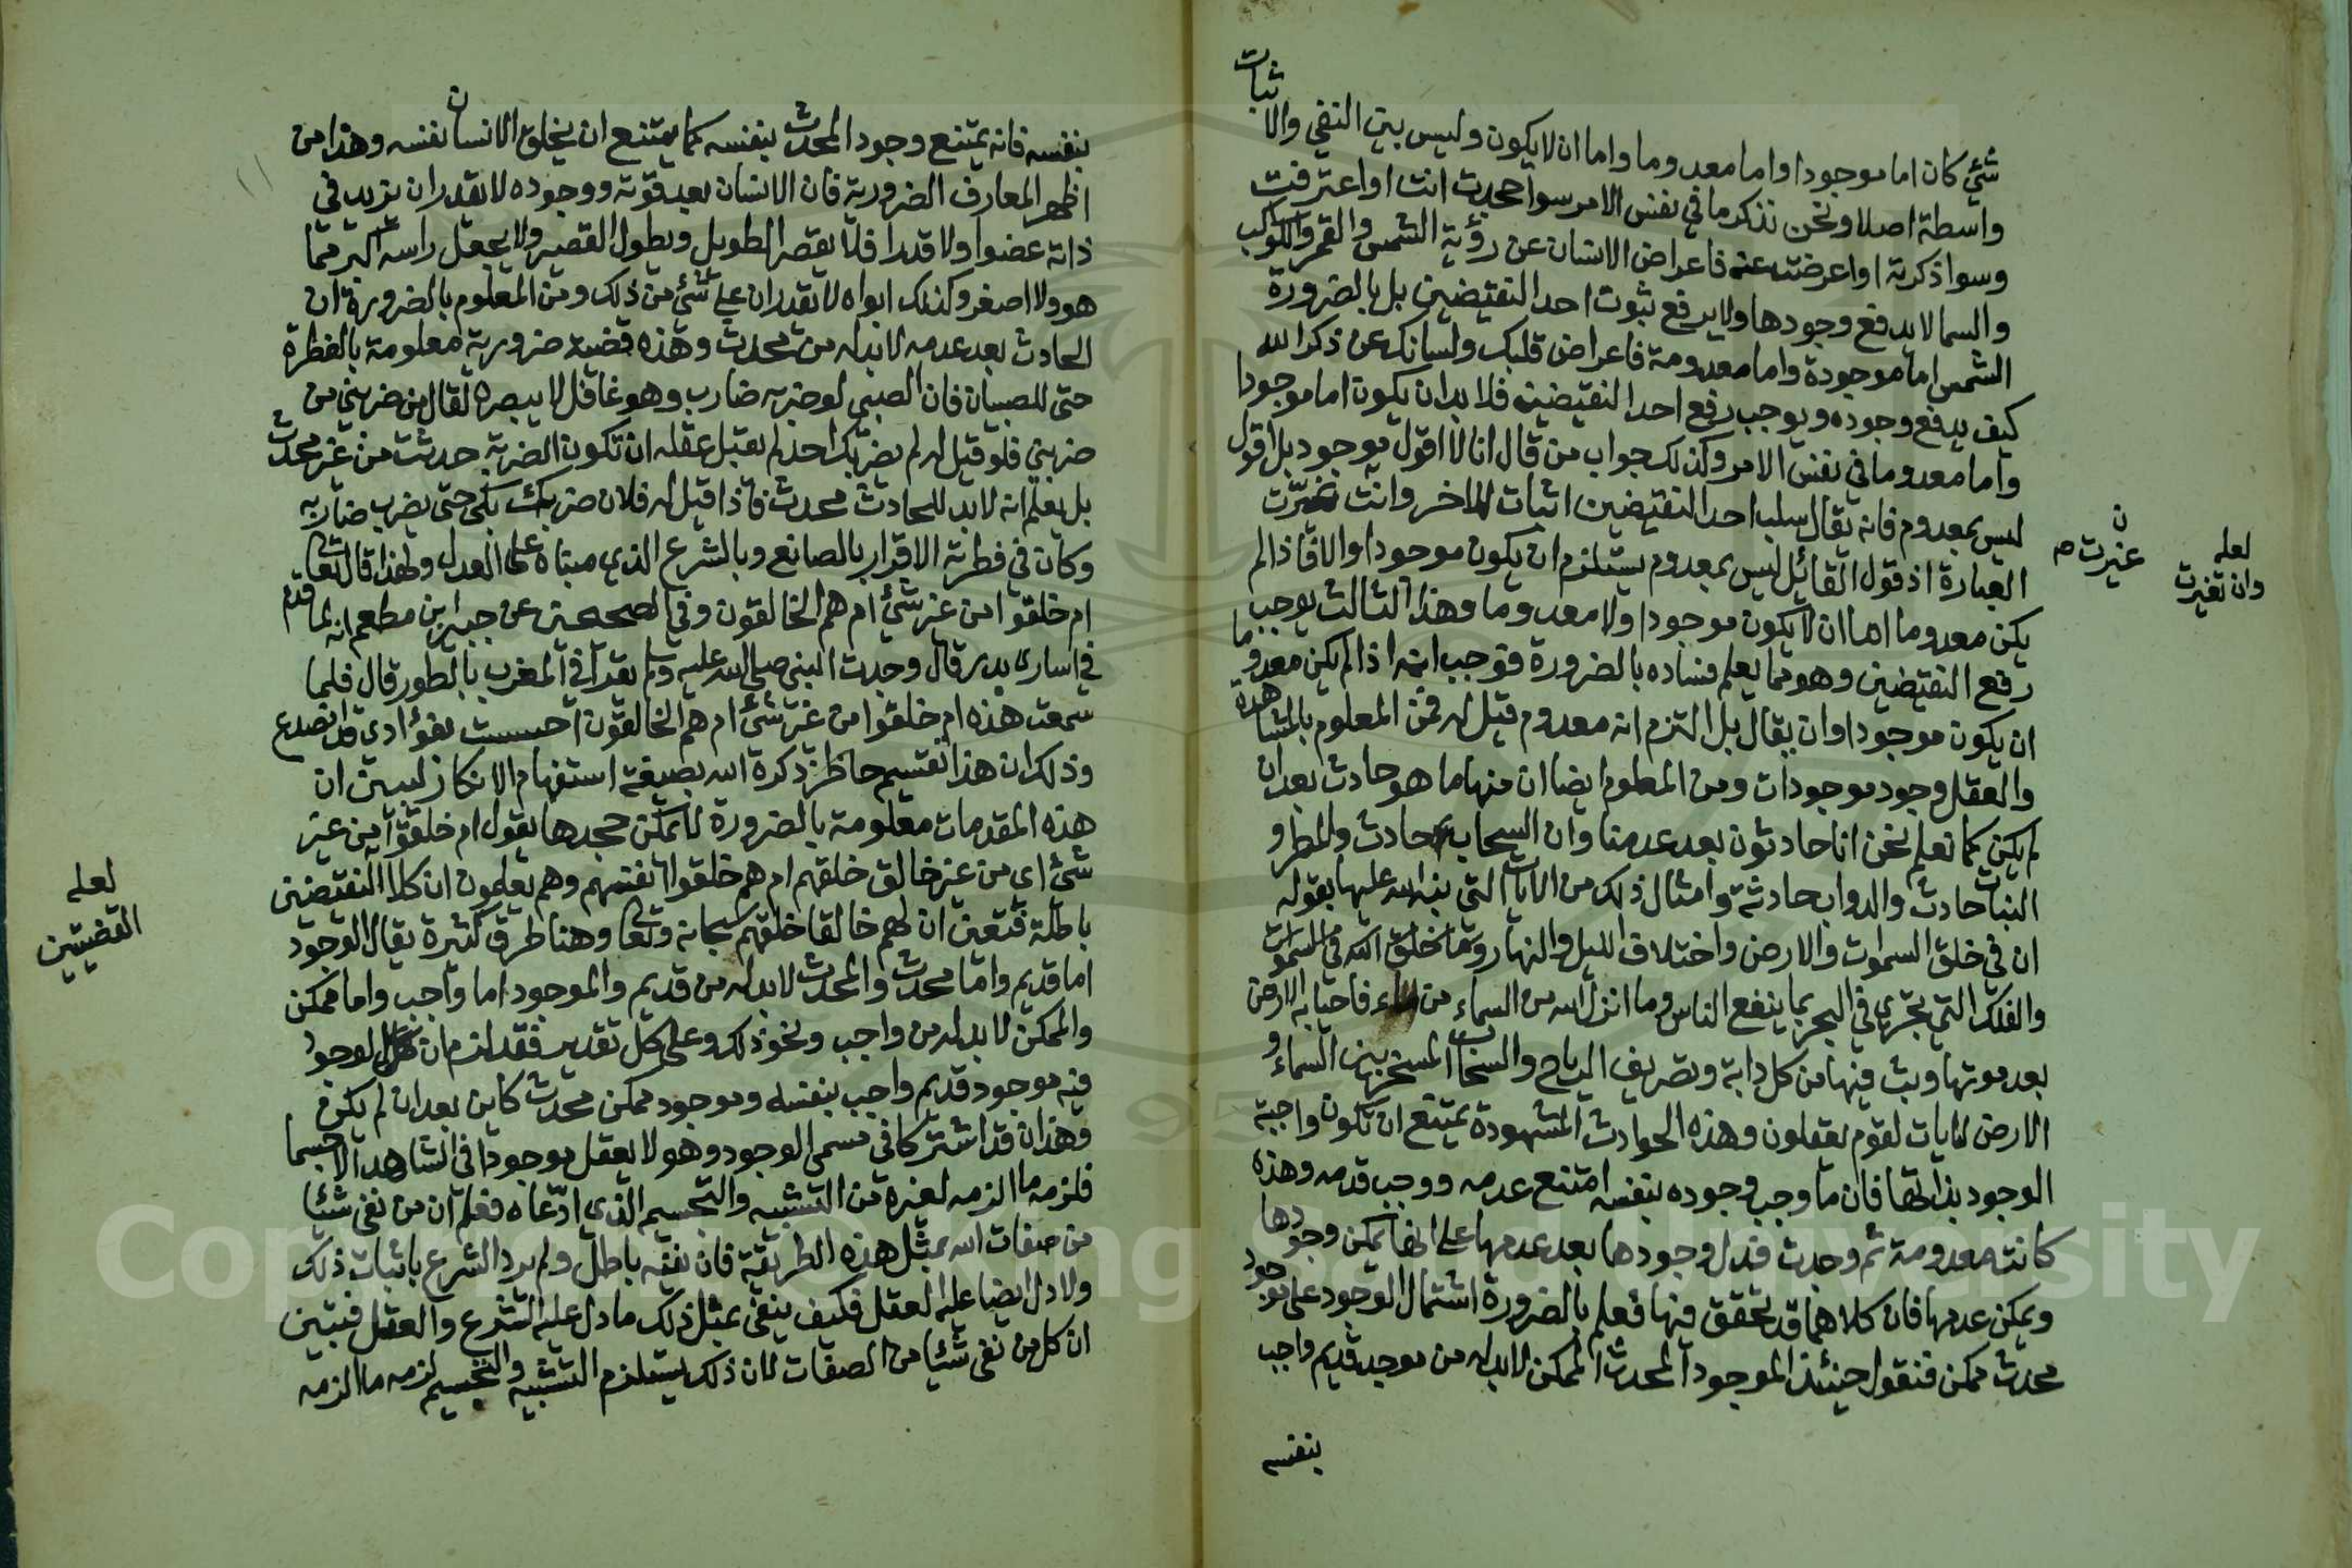 شيء كان اما موجودا واما معدوما واما ان لا يكون وليس بين النفي والاثبات
واسطة اصلا ونحن نذكر ما في نفس الامر سوا جحدت انت او اعترفت
وسوا ذكرته او اعرضت عنه فاعراض الانسان عن رؤية الشمس والقمر والكواكب
والسما لا يدفع وجودها ولا يدفع ثبوت احد النقيضين بل بالضرورة
الشمس اما موجودة واما معدومة فاعراض قلبك ولسانك عن ذكر الله
كيف يدفع وجوده ويوجب رفع احد النقيضين فلا بد ان يكون اما موجودا
واما معدوما في نفس الامر وكذلك جواب من قال انا لا اقول موجود بل اقول
ليس بمعدوم فانه يقال سلب احد النقيضين اثبات للاخر وانت غيرت
العبارة اذ قول القائل ليس بمعدوم يستلزم ان يكون موجودا والا فاذا لم
يكن معدوما اما ان لا يكون موجودا ولا معدوما وهذا الثالث يوجب
رفع النقيضين وهو مما يعلم فساده بالضرورة فوجب انه اذا لم يكن معدوما
ان يكون موجودا وان يقال بل التزم انه معدوم قيل له فمن المعلوم بالمشاهدة
والعقل وجود موجودات ومن المعلوم ايضا ان منها ما هو حادث بعد ان
لم يكن كما نعلم نحن انا حادثون بعد عدمنا وان السحاب حادث والمطر و
النبات حادث والدواب حادثة وامثال ذلك من الايات التي نبه الله عليها بقوله
ان في خلق السموات والارض واختلاف الليل والنهار وما خلق الله في السموات
والفلك التي تجري في البحر بما ينفع الناس وما انزل الله من السماء من ماء فاحيا به الارض
بعد موتها وبث فيها من كل دابة وتصريف الرياح والسحاب المسخر بين السماء و
الارض لايات لقوم يعقلون وهذه الحوادث المشهودة يمتنع ان تكون واجبة
الوجود بذاتها فان ما وجب وجوده بنفسه امتنع عدمه ووجب قدمه وهذه
كانت معدومة ثم وجدت فدل وجودها بعد عدمها على انها يمكن وجودها
ويمكن عدمها فان كلاهما قد تحقق فيها فعلم بالضرورة اشتمال الوجود على موجود
محدث ممكن فنقول حينئذ الموجود المحدث الممكن لا بد له من موجد قديم واجب
بنفسه
ن
غيرت صه
لعله
وان تغيرت
بنفسه فانه يمتنع وجود المحدث بنفسه كما يمتنع ان يخلق الانسان نفسه وهذا من
اظهر المعارف الضرورية فان الانسان بعد قوته ووجوده لا يقدر ان يزيد في
ذاته عضوا ولا قدرا فلا يقصر الطويل ويطول القصير ولا يجعل راسه اكبر مما
هو ولا اصغر وكذلك ابواه لا يقدران على شيء من ذلك ومن المعلوم بالضرورة ان
الحادث بعد عدمه لا بد له من محدث وهذه قضية ضرورية معلومة بالفطرة
حتى للصبيان فان الصبي لو ضربه ضارب وهو غافل لا يبصره لقال من ضربني من
ضربني فلو قيل له لم يضربك احد لم يقبل عقله ان تكون الضربة حدثت من غير محدث
بل يعلم انه لا بد للحادث محدث فاذا قيل له فلان ضربك بكى حتى يضرب ضاربه
وكان في فطرته الاقرار بالصانع وبالشرع الذي مبناه على العدل ولهذا قال تعالى
ام خلقوا من غير شيء ام هم الخالقون وفي الصحيحين عن جبير بن مطعم انه لما قدم
في اسارى بدر قال وجدت النبي صلى الله عليه وسلم يقرأ في المغرب بالطور قال فلما
سمعت هذه ام خلقوا من غير شيء ام هم الخالقون احسست بفؤادي قد انصدع
وذلك ان هذا تقسيم حاظر ذكره الله بصيغة استفهام الانكار ليبين ان
هذه المقدمات معلومة بالضرورة لا يمكن جحدها يقول ام خلقوا من غير
شيء اي من غير خالق خلقهم ام هم خلقوا انفسهم وهم يعلمون ان كلا النقيضين
باطلة فتعين ان لهم خالقا خلقهم سبحانه وتعالى وهنا طرق كثيرة يقال الوجود
اما قديم واما محدث والمحدث لا بد له من قديم والموجود اما واجب واما ممكن
والممكن لا بد له من واجب ونحو ذلك وعلى كل تقدير فقد لزم ان الوجود
فيه موجود قديم واجب بنفسه وموجود ممكن محدث كاين بعد ان لم يكن
وهذان قد اشتركا في مسمى الوجود وهو لا يعقل موجودا في الشاهد الا جسما
فلزمه ما الزمه لغيره من التشبيه والتجسيم الذي ادعاه فعلم ان من نفى شيئا
من صفات الله بمثل هذه الطريقة فان نفيه باطل ولم يرد الشرع باثبات ذلك
ولا دل ايضا عليه العقل فكيف ينفى بمثل ذلك ما دل عليه الشرع والعقل فتبين
ان كل من نفى شيئا من الصفات لان ذلك يستلزم التشبيه والتجسيم لزمه ما الزمه
لعله
القضيتين
١١
Copyright © King Saud University